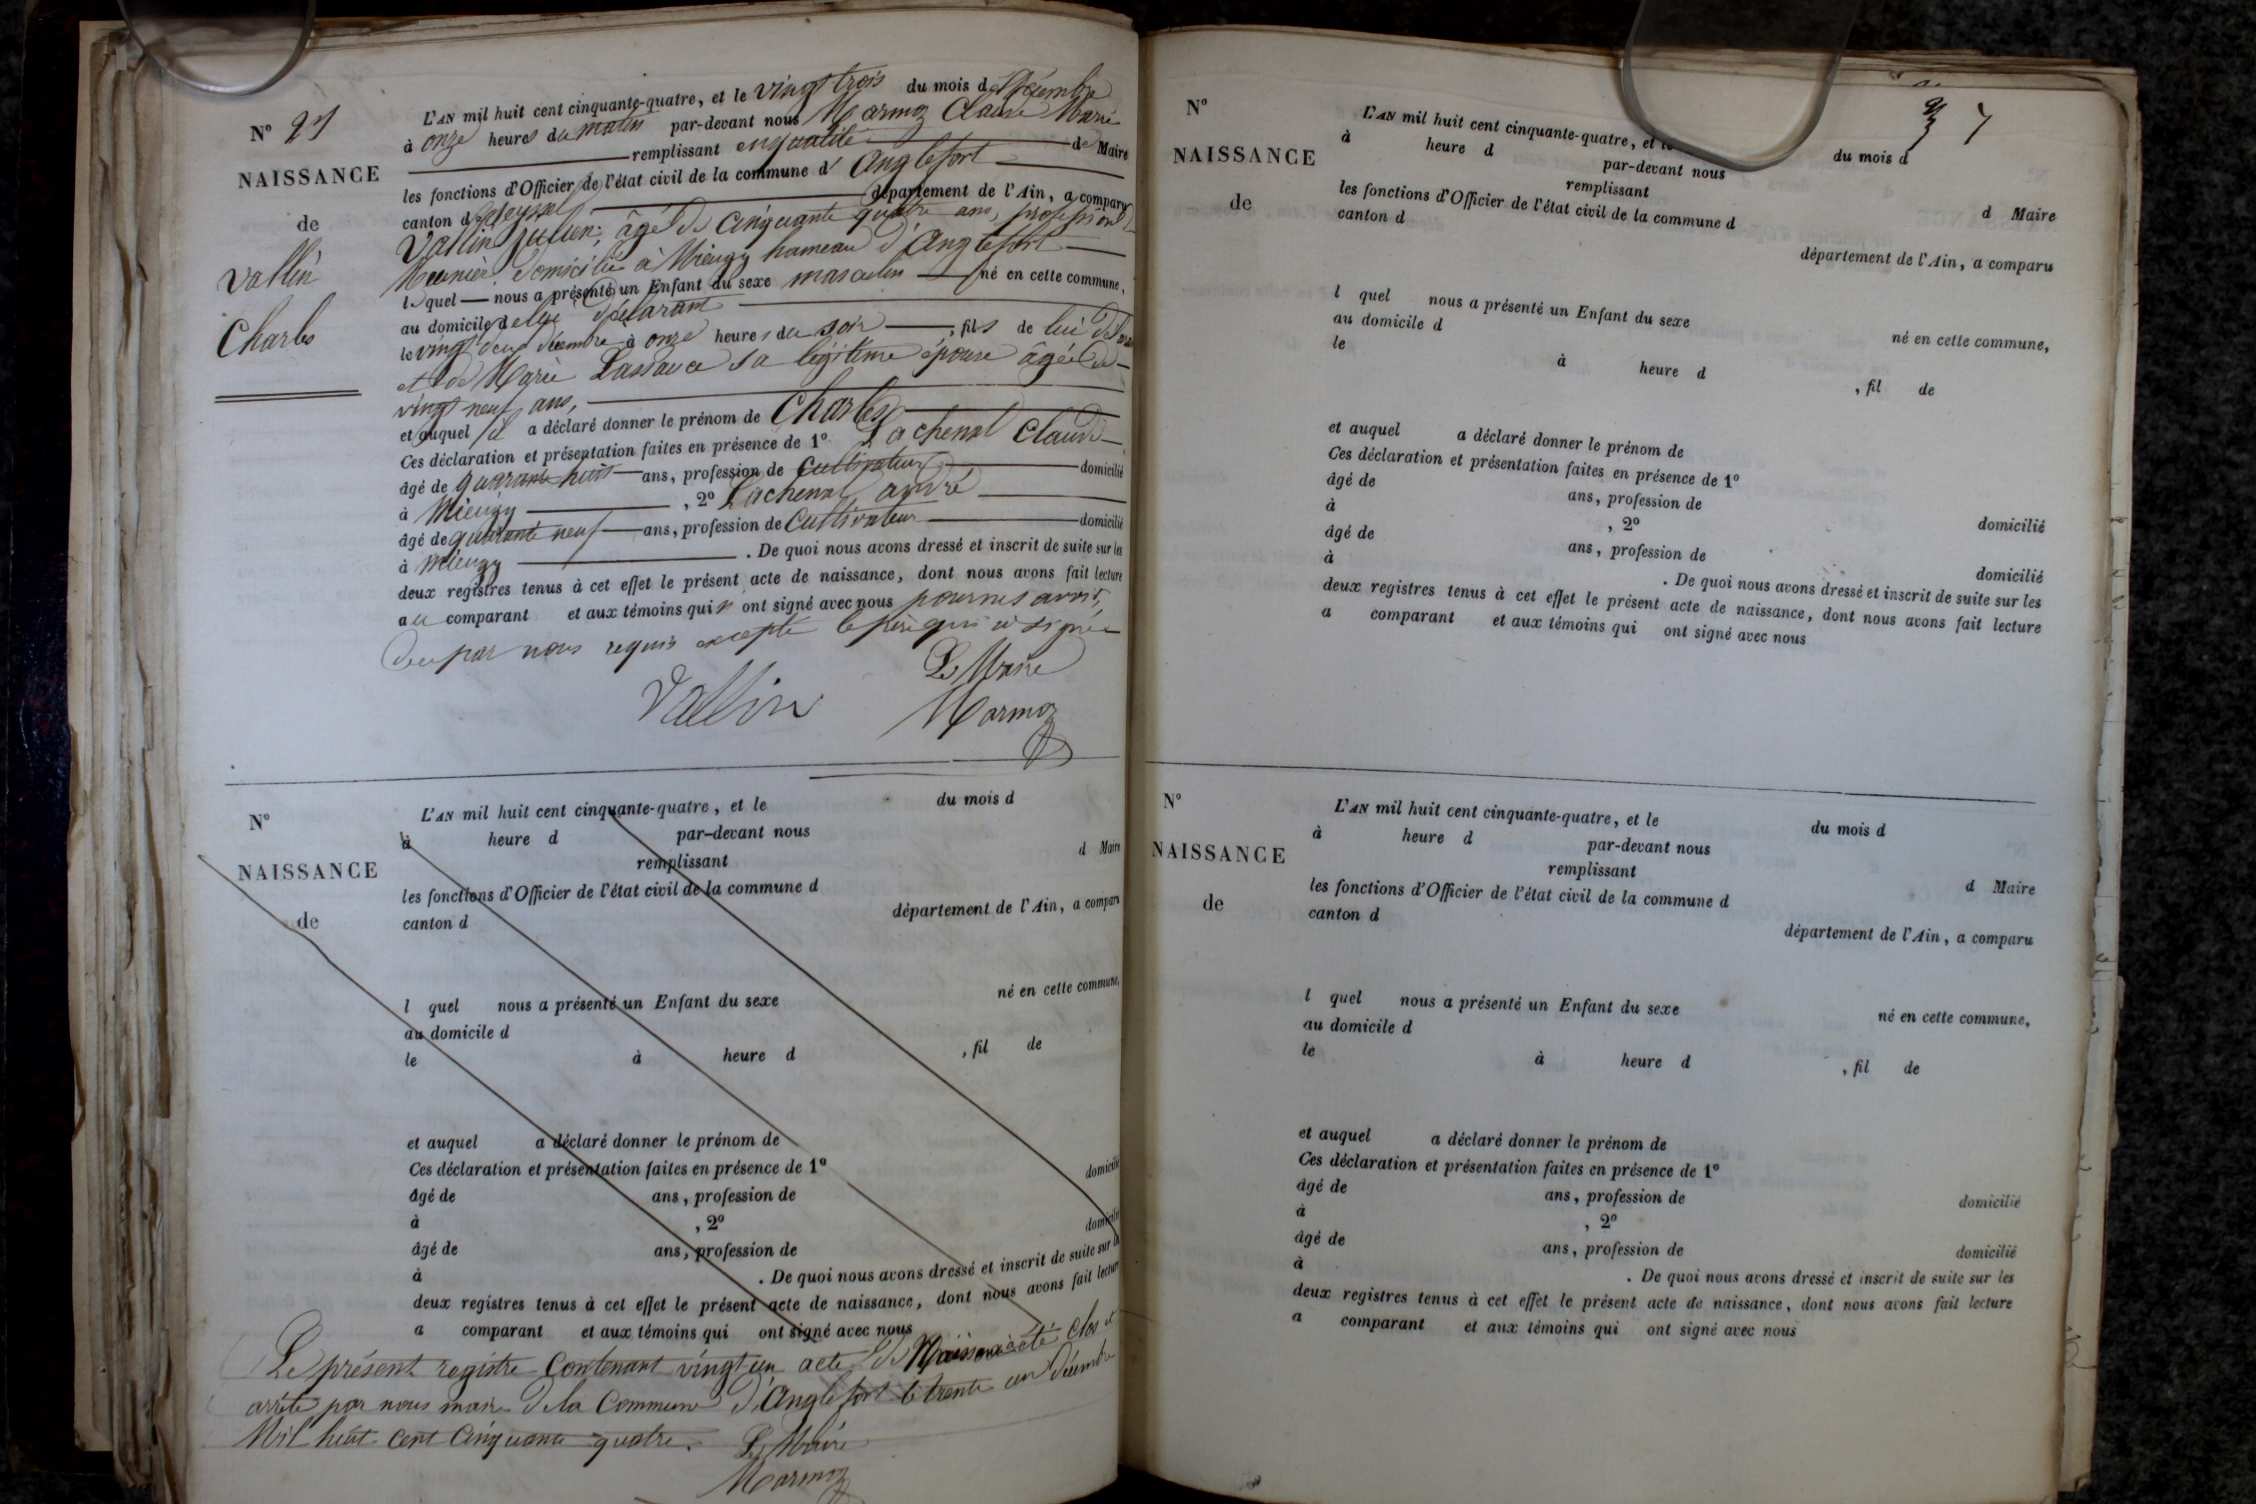 N° 21
NAISSANCE
de
Vallin
Charles
L'AN mil huit cent cinquante-quatre, et le vingt trois du mois de Décembre
à onze heures du matin par-devant nous Marmoz Claude Marie
remplissant en qualité de Maire
les fonctions d'Officier de l'état civil de la commune d'Anglefort
canton de Seyssel département de l'Ain, a comparu
Vallin Julien, âgé de cinquante quatre ans, profession de
Meunier domicilié à Mieugy hameau d'Anglefort
lequel nous a présenté un Enfant du sexe masculin né en cette commune,
au domicile de lui déclarant
le vingt deux décembre à onze heures du soir, fils de lui
et de Marie sa légitime épouse âgée de
vingt neuf ans,
et auquel il a déclaré donner le prénom de Charles
Ces déclaration et présentation faites en présence de 1° Lachenal Claude
âgé de quarante huit ans, profession de Cultivateur domicilié
à Mieugy, 2° Lachenal andré
âgé de quarante neuf ans, profession de Cultivateur domicilié
à Mieugy. De quoi nous avons dressé et inscrit de suite sur les
deux registres tenus à cet effet le présent acte de naissance, dont nous avons fait lecture
au comparant et aux témoins qui n ont signé avec nous
par nous requis excepté le père qui a signé
Le Maire
Vallin Marmoz
N°
NAISSANCE
de
L'AN mil huit cent cinquante-quatre, et le du mois d
à heure d par-devant nous
remplissant d Maire
les fonctions d'Officier de l'état civil de la commune d
canton d département de l'Ain, a comparu
l quel nous a présenté un Enfant du sexe né en cette commune,
au domicile d
le à heure d , fil de
et auquel a déclaré donner le prénom de
Ces déclaration et présentation faites en présence de 1°
âgé de ans, profession de domicilié
à , 2°
âgé de ans, profession de domicilié
à . De quoi nous avons dressé et inscrit de suite sur les
deux registres tenus à cet effet le présent acte de naissance, dont nous avons fait lecture
a comparant et aux témoins qui ont signé avec nous
Le présent registre contenant vingt un acte de Naissance a été clos et
arrêté par nous maire de la Commune d'Anglefort le trente un Décembre
Mil huit cent cinquante quatre.
Le Maire
Marmoz
7
N°
NAISSANCE
de
L'AN mil huit cent cinquante-quatre, et le du mois d
à heure d par-devant nous
remplissant d Maire
les fonctions d'Officier de l'état civil de la commune d
canton d département de l'Ain, a comparu
l quel nous a présenté un Enfant du sexe né en cette commune,
au domicile d
le à heure d , fil de
et auquel a déclaré donner le prénom de
Ces déclaration et présentation faites en présence de 1°
âgé de ans, profession de domicilié
à , 2°
âgé de ans, profession de domicilié
à . De quoi nous avons dressé et inscrit de suite sur les
deux registres tenus à cet effet le présent acte de naissance, dont nous avons fait lecture
a comparant et aux témoins qui ont signé avec nous
N°
NAISSANCE
de
L'AN mil huit cent cinquante-quatre, et le du mois d
à heure d par-devant nous
remplissant d Maire
les fonctions d'Officier de l'état civil de la commune d
canton d département de l'Ain, a comparu
l quel nous a présenté un Enfant du sexe né en cette commune,
au domicile d
le à heure d , fil de
et auquel a déclaré donner le prénom de
Ces déclaration et présentation faites en présence de 1°
âgé de ans, profession de domicilié
à , 2°
âgé de ans, profession de domicilié
à . De quoi nous avons dressé et inscrit de suite sur les
deux registres tenus à cet effet le présent acte de naissance, dont nous avons fait lecture
a comparant et aux témoins qui ont signé avec nous